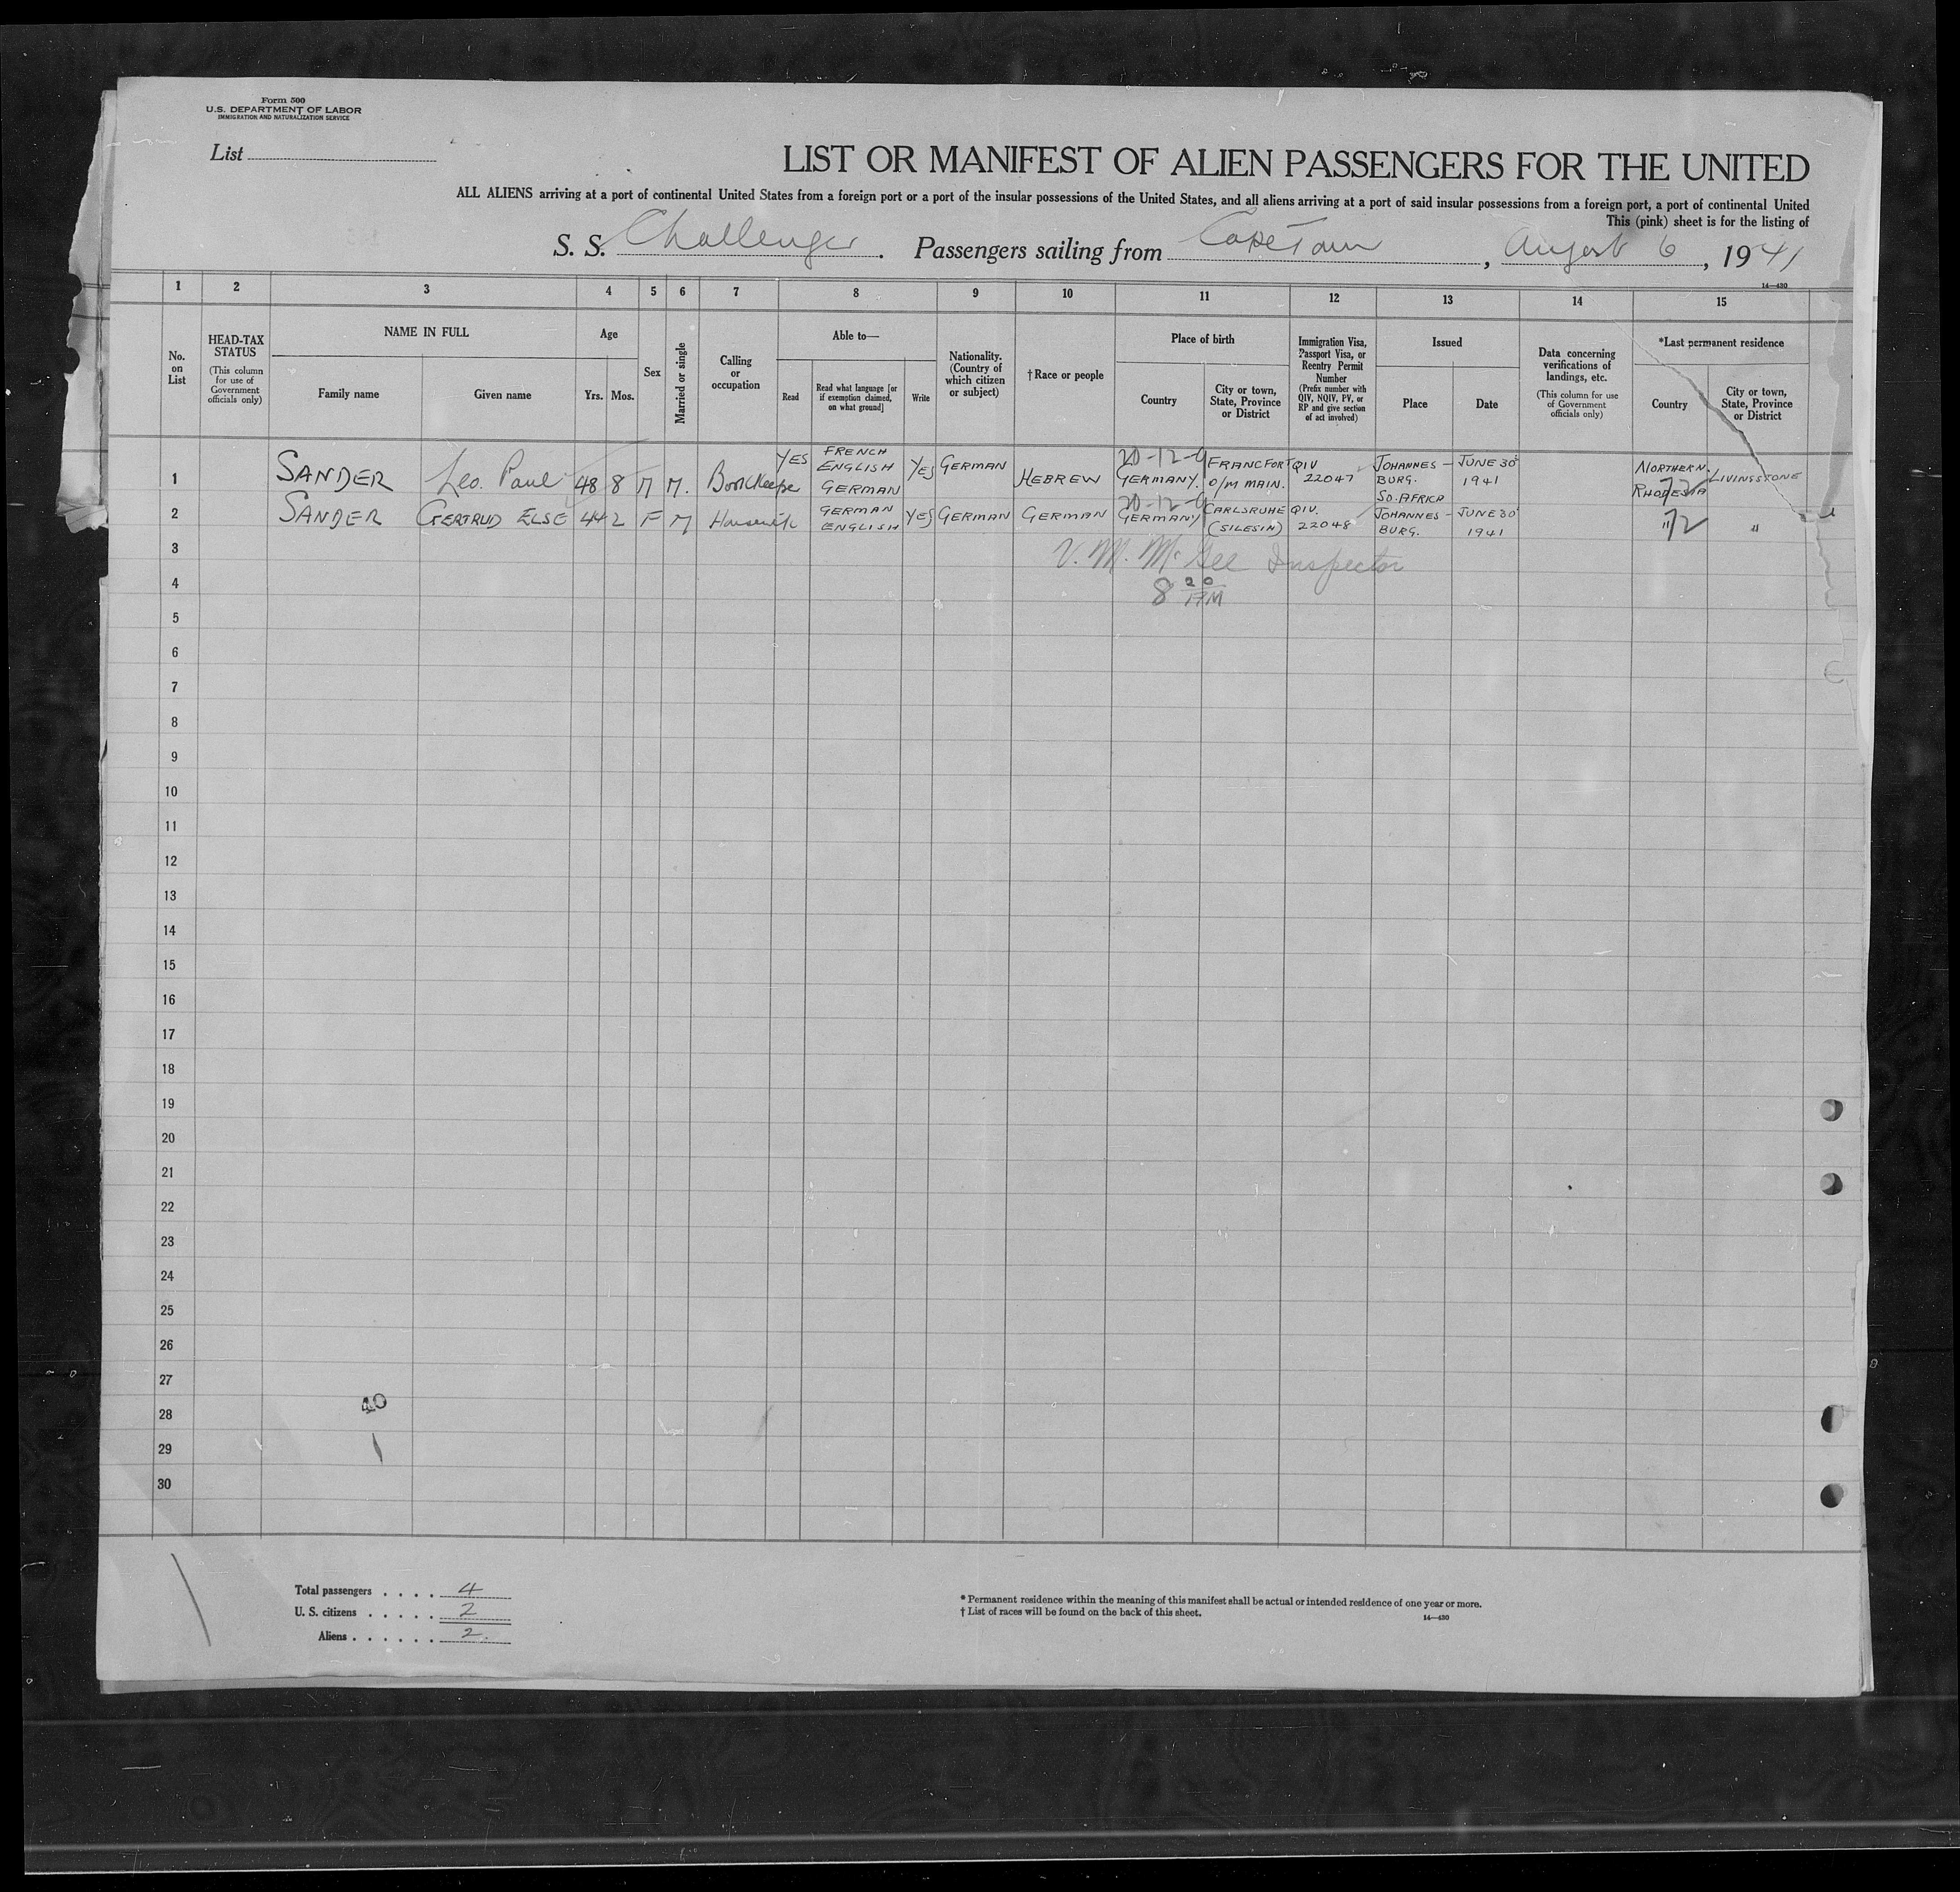 Form 500
U.S. DEPARTMENT OF LABOR
IMMIGRATION AND NATURALIZATION SERVICE
List
LIST OR MANIFEST OF ALIEN PASSENGERS FOR THE UNITED
ALL ALIENS arriving at a port of continental United States from a foreign port or a port of the insular possessions of the United States, and all aliens arriving at a port of said insular possessions from a foreign port, a port of continental United
This (pink) sheet is for the listing of
S. S. Challenger. Passengers sailing from CapeTown, August 6, 1941
14—430
1 2 3 4 5 6 7 8 9 10 11 12 13 14 15
No. on List
HEAD-TAX STATUS
(This column for use of Government officials only)
NAME IN FULL
Family name
Given name
Age
Yrs. Mos.
Sex
Married or single
Calling or occupation
Able to—
Read
Read what language [or if exemption claimed, on what ground]
Write
Nationality. (Country of which citizen or subject)
†Race or people
Place of birth
Country
City or town, State, Province or District
Immigration Visa, Passport Visa, or Reentry Permit Number
(Prefix number with QIV, NQIV, PV, or RP and give section of act involved)
Issued
Place
Date
Data concerning verifications of landings, etc.
(This column for use of Government officials only)
*Last permanent residence
Country
City or town, State, Province or District
1 SANDER Leo. Paul 48 8 M M. Bookkeeper YES FRENCH ENGLISH GERMAN YES GERMAN HEBREW GERMANY. FRANCFORT O/M MAIN. QIV 22047 JOHANNES-BURG. SO. AFRICA JUNE 30 1941 NORTHERN RHODESIA LIVINGSTONE
2 SANDER GERTRUD ELSE 44 2 F M Housewife GERMAN ENGLISH YES GERMAN GERMAN GERMANY CARLSRUHE (SILESIA) QIV. 22048 JOHANNES-BURG. JUNE 30 1941 " 72 "
3 V. M. McGee Inspector
4 8 20
5
6
7
8
9
10
11
12
13
14
15
16
17
18
19
20
21
22
23
24
25
26
27
40
28
29
30
Total passengers . . . . 4
U. S. citizens . . . . . 2
Aliens . . . . . . 2.
* Permanent residence within the meaning of this manifest shall be actual or intended residence of one year or more.
† List of races will be found on the back of this sheet.
14—430